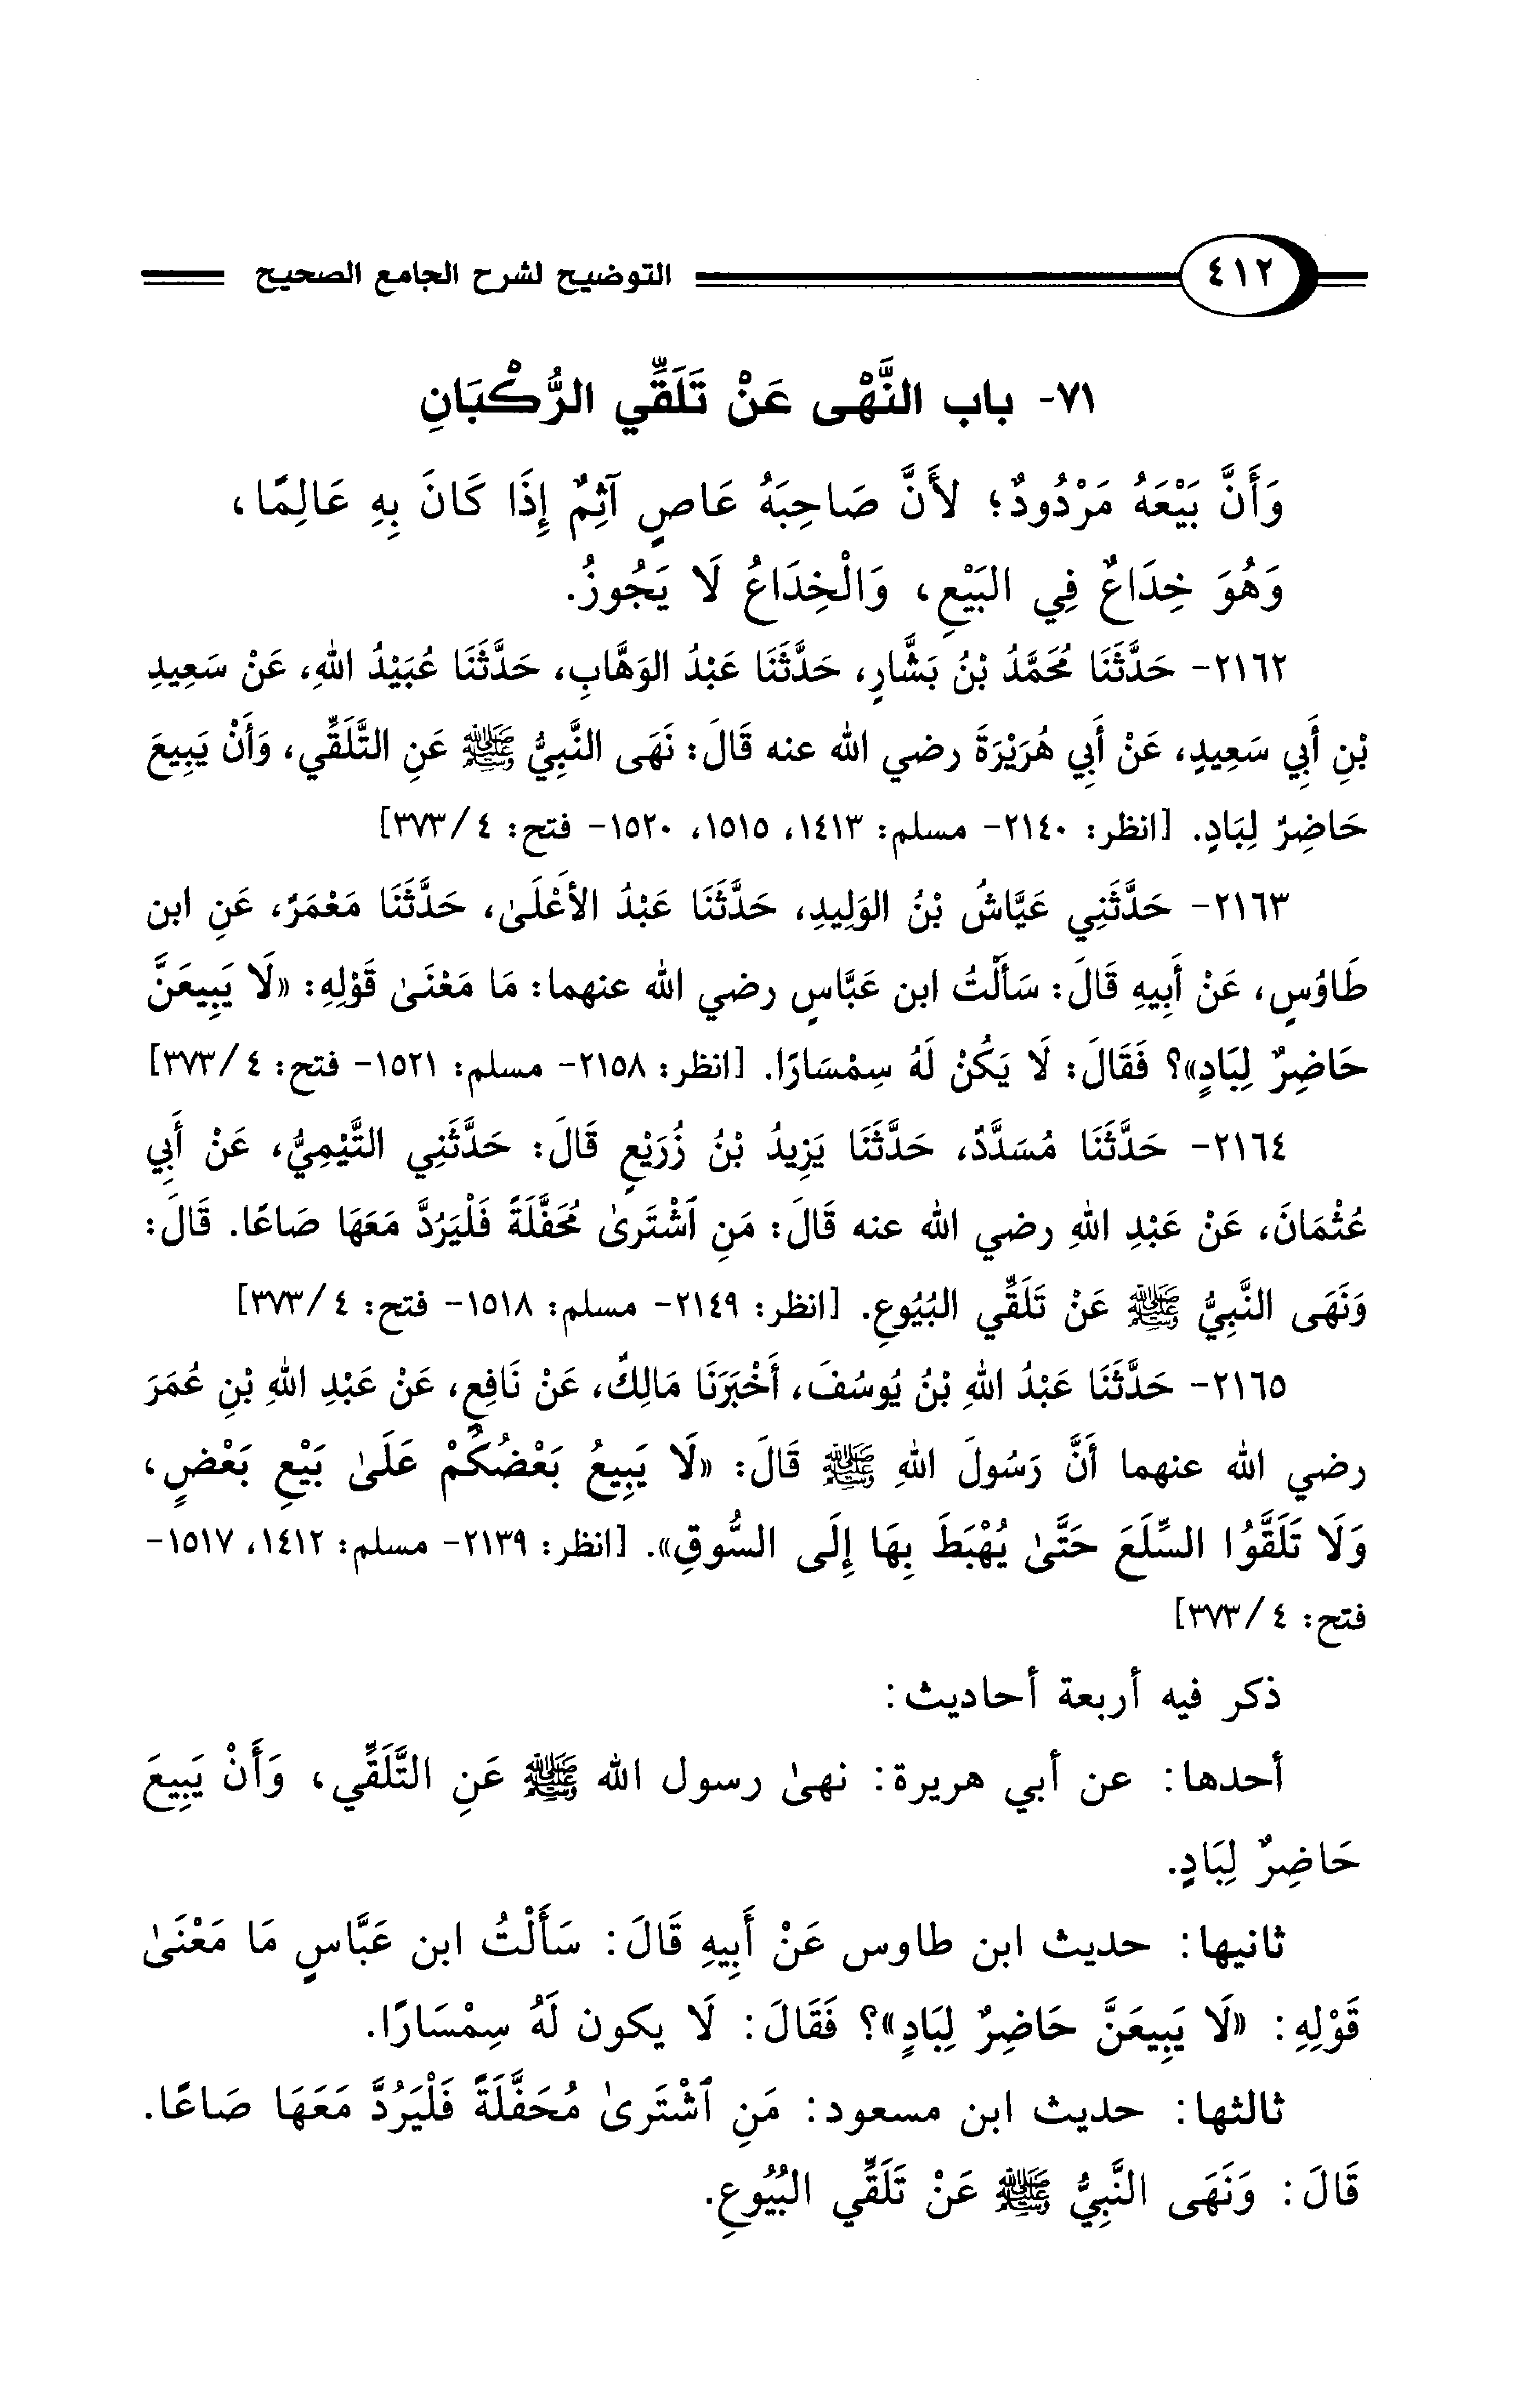 ٤١٢ التوضيح لشرح الجامع الصحيح
٧١- باب النَّهْى عَنْ تَلَقِّي الرُّكْبَانِ
وَأَنَّ بَيْعَهُ مَرْدُودٌ؛ لأَنَّ صَاحِبَهُ عَاصٍ آثِمٌ إِذَا كَانَ بِهِ عَالِمًا،
وَهُوَ خِدَاعٌ فِي البَيْعِ، وَالْخِدَاعُ لَا يَجُوزُ.
٢١٦٢- حَدَّثَنَا مُحَمَّدُ بْنُ بَشَّارٍ، حَدَّثَنَا عَبْدُ الوَهَّابِ، حَدَّثَنَا عُبَيْدُ اللهِ، عَنْ سَعِيدِ
بْنِ أَبِي سَعِيدٍ، عَنْ أَبِي هُرَيْرَةَ رضي الله عنه قَالَ: نَهَى النَّبِيُّ ﷺ عَنِ التَّلَقِّي، وَأَنْ يَبِيعَ
حَاضِرٌ لِبَادٍ. [انظر: ٢١٤٠- مسلم: ١٤١٣، ١٥١٥، ١٥٢٠- فتح: ٤/ ٣٧٣]
٢١٦٣- حَدَّثَنِي عَيَّاشُ بْنُ الوَلِيدِ، حَدَّثَنَا عَبْدُ الأَعْلَىٰ، حَدَّثَنَا مَعْمَرٌ، عَنِ ابن
طَاوُسٍ، عَنْ أَبِيهِ قَالَ: سَأَلْتُ ابن عَبَّاسٍ رضي الله عنهما: مَا مَعْنَىٰ قَوْلِهِ: «لَا يَبِيعَنَّ
حَاضِرٌ لِبَادٍ»؟ فَقَالَ: لَا يَكُنْ لَهُ سِمْسَارًا. [انظر: ٢١٥٨- مسلم: ١٥٢١- فتح: ٤/ ٣٧٣]
٢١٦٤- حَدَّثَنَا مُسَدَّدٌ، حَدَّثَنَا يَزِيدُ بْنُ زُرَيْعٍ قَالَ: حَدَّثَنِي التَّيْمِيُّ، عَنْ أَبِي
عُثْمَانَ، عَنْ عَبْدِ اللهِ رضي الله عنه قَالَ: مَنِ ٱشْتَرىٰ مُحَفَّلَةً فَلْيَرُدَّ مَعَهَا صَاعًا. قَالَ:
وَنَهَى النَّبِيُّ ﷺ عَنْ تَلَقِّي البُيُوعِ. [انظر: ٢١٤٩- مسلم: ١٥١٨- فتح: ٤/ ٣٧٣]
٢١٦٥- حَدَّثَنَا عَبْدُ اللهِ بْنُ يُوسُفَ، أَخْبَرَنَا مَالِكٌ، عَنْ نَافِعٍ، عَنْ عَبْدِ اللهِ بْنِ عُمَرَ
رضي الله عنهما أَنَّ رَسُولَ اللهِ ﷺ قَالَ: «لَا يَبِيعُ بَعْضُكُمْ عَلَىٰ بَيْعِ بَعْضٍ،
وَلَا تَلَقَّوُا السِّلَعَ حَتَّىٰ يُهْبَطَ بِهَا إِلَى السُّوقِ». [انظر: ٢١٣٩- مسلم: ١٤١٢، ١٥١٧-
فتح: ٤/ ٣٧٣]
ذكر فيه أربعة أحاديث:
أحدها: عن أبي هريرة: نهىٰ رسول الله ﷺ عَنِ التَّلَقِّي، وَأَنْ يَبِيعَ
حَاضِرٌ لِبَادٍ.
ثانيها: حديث ابن طاوس عَنْ أَبِيهِ قَالَ: سَأَلْتُ ابن عَبَّاسٍ مَا مَعْنَىٰ
قَوْلِهِ: «لَا يَبِيعَنَّ حَاضِرٌ لِبَادٍ»؟ فَقَالَ: لَا يكون لَهُ سِمْسَارًا.
ثالثها: حديث ابن مسعود: مَنِ ٱشْتَرىٰ مُحَفَّلَةً فَلْيَرُدَّ مَعَهَا صَاعًا.
قَالَ: وَنَهَى النَّبِيُّ ﷺ عَنْ تَلَقِّي البُيُوعِ.